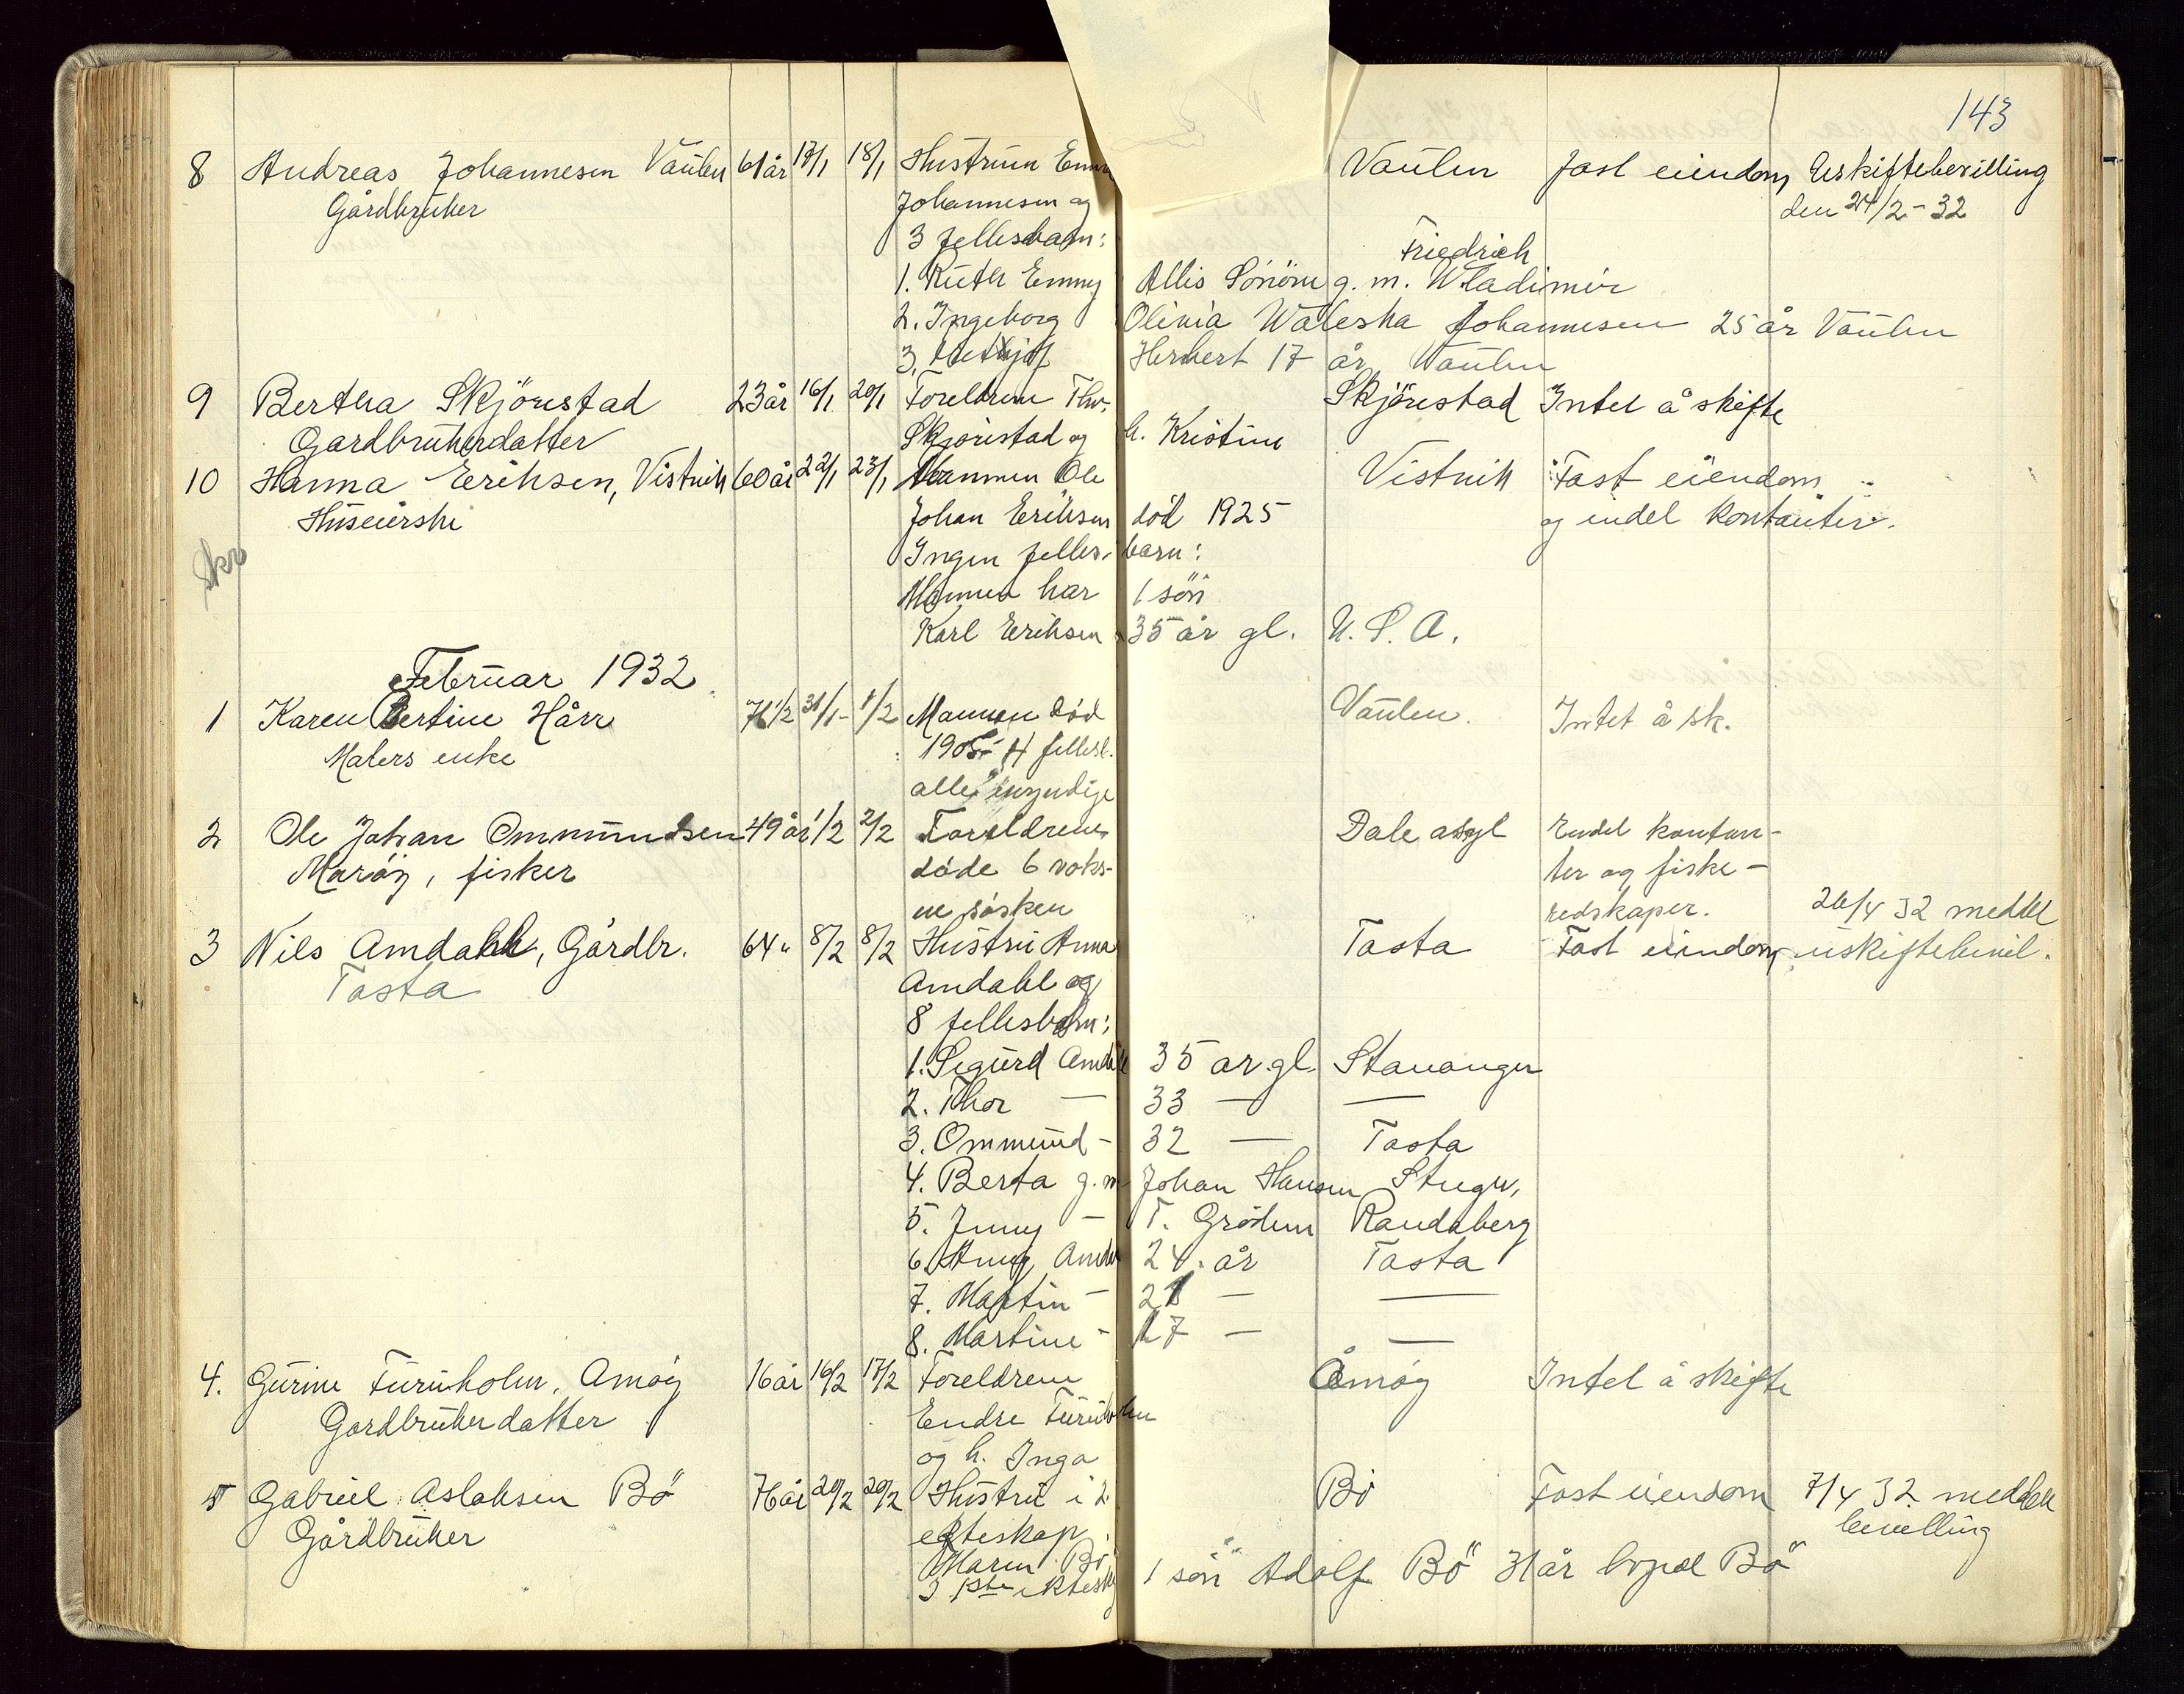 143
8 Andreas Johannesen Vaulen 61 år 17/1 18/1 Hustruen Vaulen fast eiendom Uskiftebevilling
Gårdbruker Johannesen og den 24/2-32
3 fellesbarn:
Friedrich
1. Ruth Emmy Allis g. m. Wladimir
2. Ingeborg Olivia Waleska Johannesen 25 år Vaulen
3. Herbert 17 år Vaulen
9 Bertha Skjörestad 23 år 16/1 20/1 Foreldrene Skjörestad Intet å skifte
Gardbrukerdatter Skjörestad og h. Kristine
10 Hanna Eriksen, Vistnik 60 år 22/1 23/1 Mannen Ole Vistnik Fast eiendom
Huseierske Johan Eriksen död 1925 og endel kontanter.
Skr Ingen felles- barn:
Mannen har 1 sön
Karl Eriksen 35 år gl. U.S.A.
Februar 1932
1 Karen Bertine Hårr 71 1/2 31/1 - 1/2 Mannen död Vaulen. Intet å sk.
Malers enke 1905 4 fellesb.
alle myndige
2 Ole Johan Ommundsen 49 år 1/2 2/2 Foreldrene Dale asyl Endel kontan-
Maröy, fisker döde 6 voks- ter og fiske-
ne sösken redskaper. 26/4 32 meddel
3 Nils Amdahl, Gårdbr. 64 " 8/2 8/2 Hustru Anna Tasta Fast eiendom uskiftebevil.
Tasta Amdahl og
8 fellesbarn:
1. Sigurd Amdahl 35 år gl. Stavanger
2. Thor — 33 — —
3. Ommund - 32 — Tasta
4. Berta g.m Johan Hansen Stvgr,
5. Jenny — T. Grödem Randaberg
6. Amdal 24. år Tasta
7. Martin - 21 — —
8. Martine - 17 — —
4. Gurine Furuholm, Amöy 16 år 16/2 17/2 Foreldrene Åmöy Intet å skifte
Gardbrukerdatter Endre Furuholm
og h. Inga
5 Gabriel Aslaksen Bö 76 år 20/2 20/2 Hustru i 2. Bö Fast eiendom 7/4 32 meddelt
Gårdbruker egteskap bevilling
Maren Bö
I 1ste ekteskap 1 sön Adolf Bö 31 år bopæl Bö